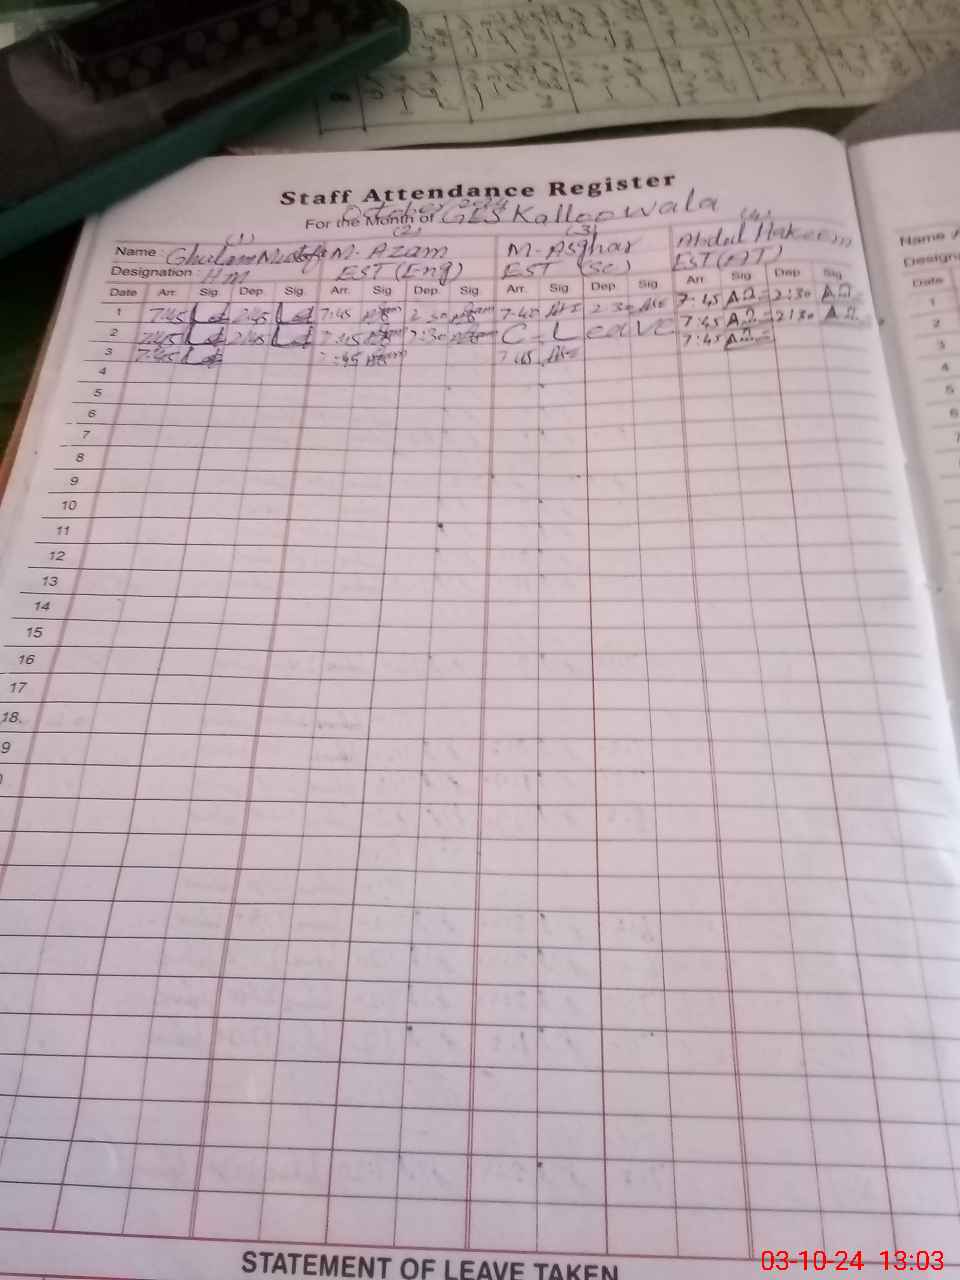 Staff Attendance Register
For the Month of October 2024 GES Kalloowala
(1) (2) (3) (4)
Name : Ghulam Mustafa M. Azam M. Asghar Abdul Hakeem
Designation : HM EST (Eng) EST (Sc) EST (AT)
Date Arr. Sig. Dep. Sig. Arr. Sig. Dep. Sig. Arr. Sig. Dep. Sig. Arr. Sig. Dep. Sig.
1 7:45 2:45 7:45 2:30 7:45 2:30 7:45 2:30
2 7:45 2:45 7:45 2:30 C-Leave 7:45 2:30
3 7:45 7:45 7:45 7:45
4
5
6
7
8
9
10
11
12
13
14
15
16
17
18.
9
STATEMENT OF LEAVE TAKEN
Name
Design
Date
1
2
3
4
5
6
7
8
03-10-24 13:03